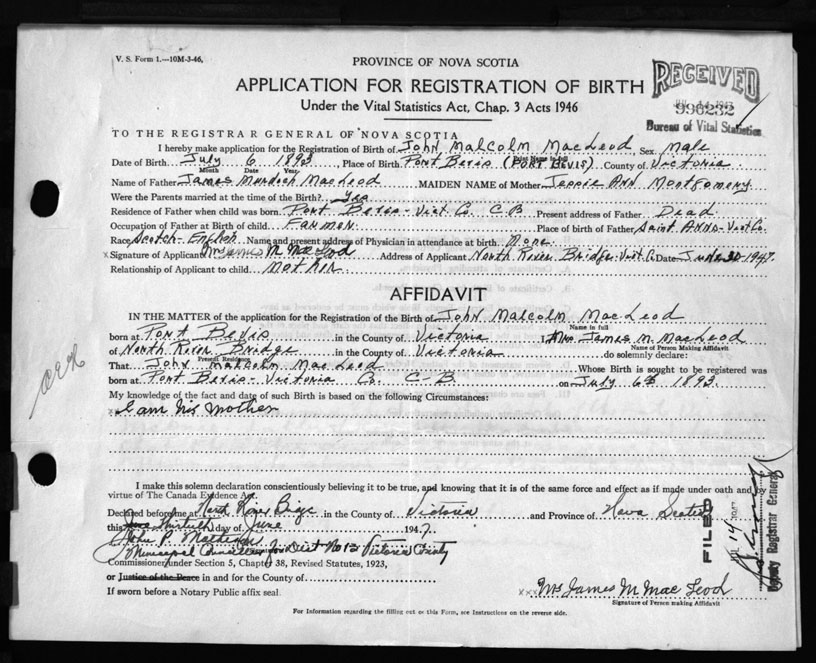 V. S. Form 1.—10M-3-46.
PROVINCE OF NOVA SCOTIA
APPLICATION FOR REGISTRATION OF BIRTH
Under the Vital Statistics Act, Chap. 3 Acts 1946
RECEIVED
996232
Bureau of Vital Statistics
TO THE REGISTRAR GENERAL OF NOVA SCOTIA
I hereby make application for the Registration of Birth of John Malcolm MacLeod Sex Male
Print Name in full
Date of Birth July 6 1893 Place of Birth Port Bevis (PORT BEVIS) County of Victoria
Month Date Year
Name of Father James Murdoch MacLeod MAIDEN NAME of Mother Jessie Ann Montgomery
Were the Parents married at the time of the Birth? Yes
Residence of Father when child was born Port Bevis - Vict. Co. C B Present address of Father Dead
Occupation of Father at Birth of child Farmer Place of birth of Father Saint Anns - Vict Co.
Race Scotch - English Name and present address of Physician in attendance at birth None
x Signature of Applicant Mrs James M MacLeod Address of Applicant North River Bridge Vict. Co Date June 30 1947
Relationship of Applicant to child Mother
AFFIDAVIT
IN THE MATTER of the application for the Registration of the Birth of John Malcolm MacLeod
Name in full
born at Port Bevis in the County of Victoria I Mrs James M. MacLeod
Name of Person Making Affidavit
of North River Bridge in the County of Victoria do solemnly declare:
Present Residence
That John Malcolm MacLeod Whose Birth is sought to be registered was
born at Port Bevis - Victoria Co. C-B. on July 6th 1893
My knowledge of the fact and date of such Birth is based on the following Circumstances:
x I am his Mother
I make this solemn declaration conscientiously believing it to be true, and knowing that it is of the same force and effect as if made under oath and by
virtue of The Canada Evidence Act.
Declared before me at North River Bridge in the County of Victoria and Province of Nova Scotia
this thirtieth day of June 1947.
John P. Matheson
Municipal Councillor for Dist No 12 Victoria County
Commissioner under Section 5, Chapter 38, Revised Statutes, 1923,
or Justice of the Peace in and for the County of
If sworn before a Notary Public affix seal.
xxx Mrs James M MacLeod
Signature of Person making Affidavit
For Information regarding the filling out of this Form, see Instructions on the reverse side.
FILED
JUL 14 1947
Deputy Registrar General